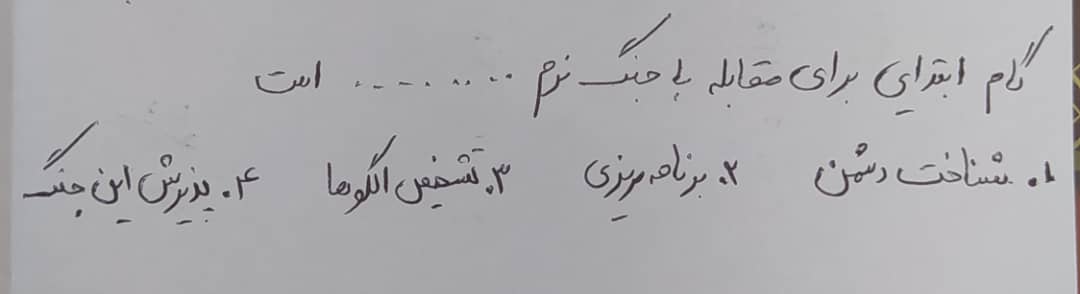 گام ابتدایی برای مقابله با جنگ نرم .......... است
۱. شناخت دشمن ۲. برنامه ریزی ۳. تشخیص الگوها ۴. پذیرش این جنگ